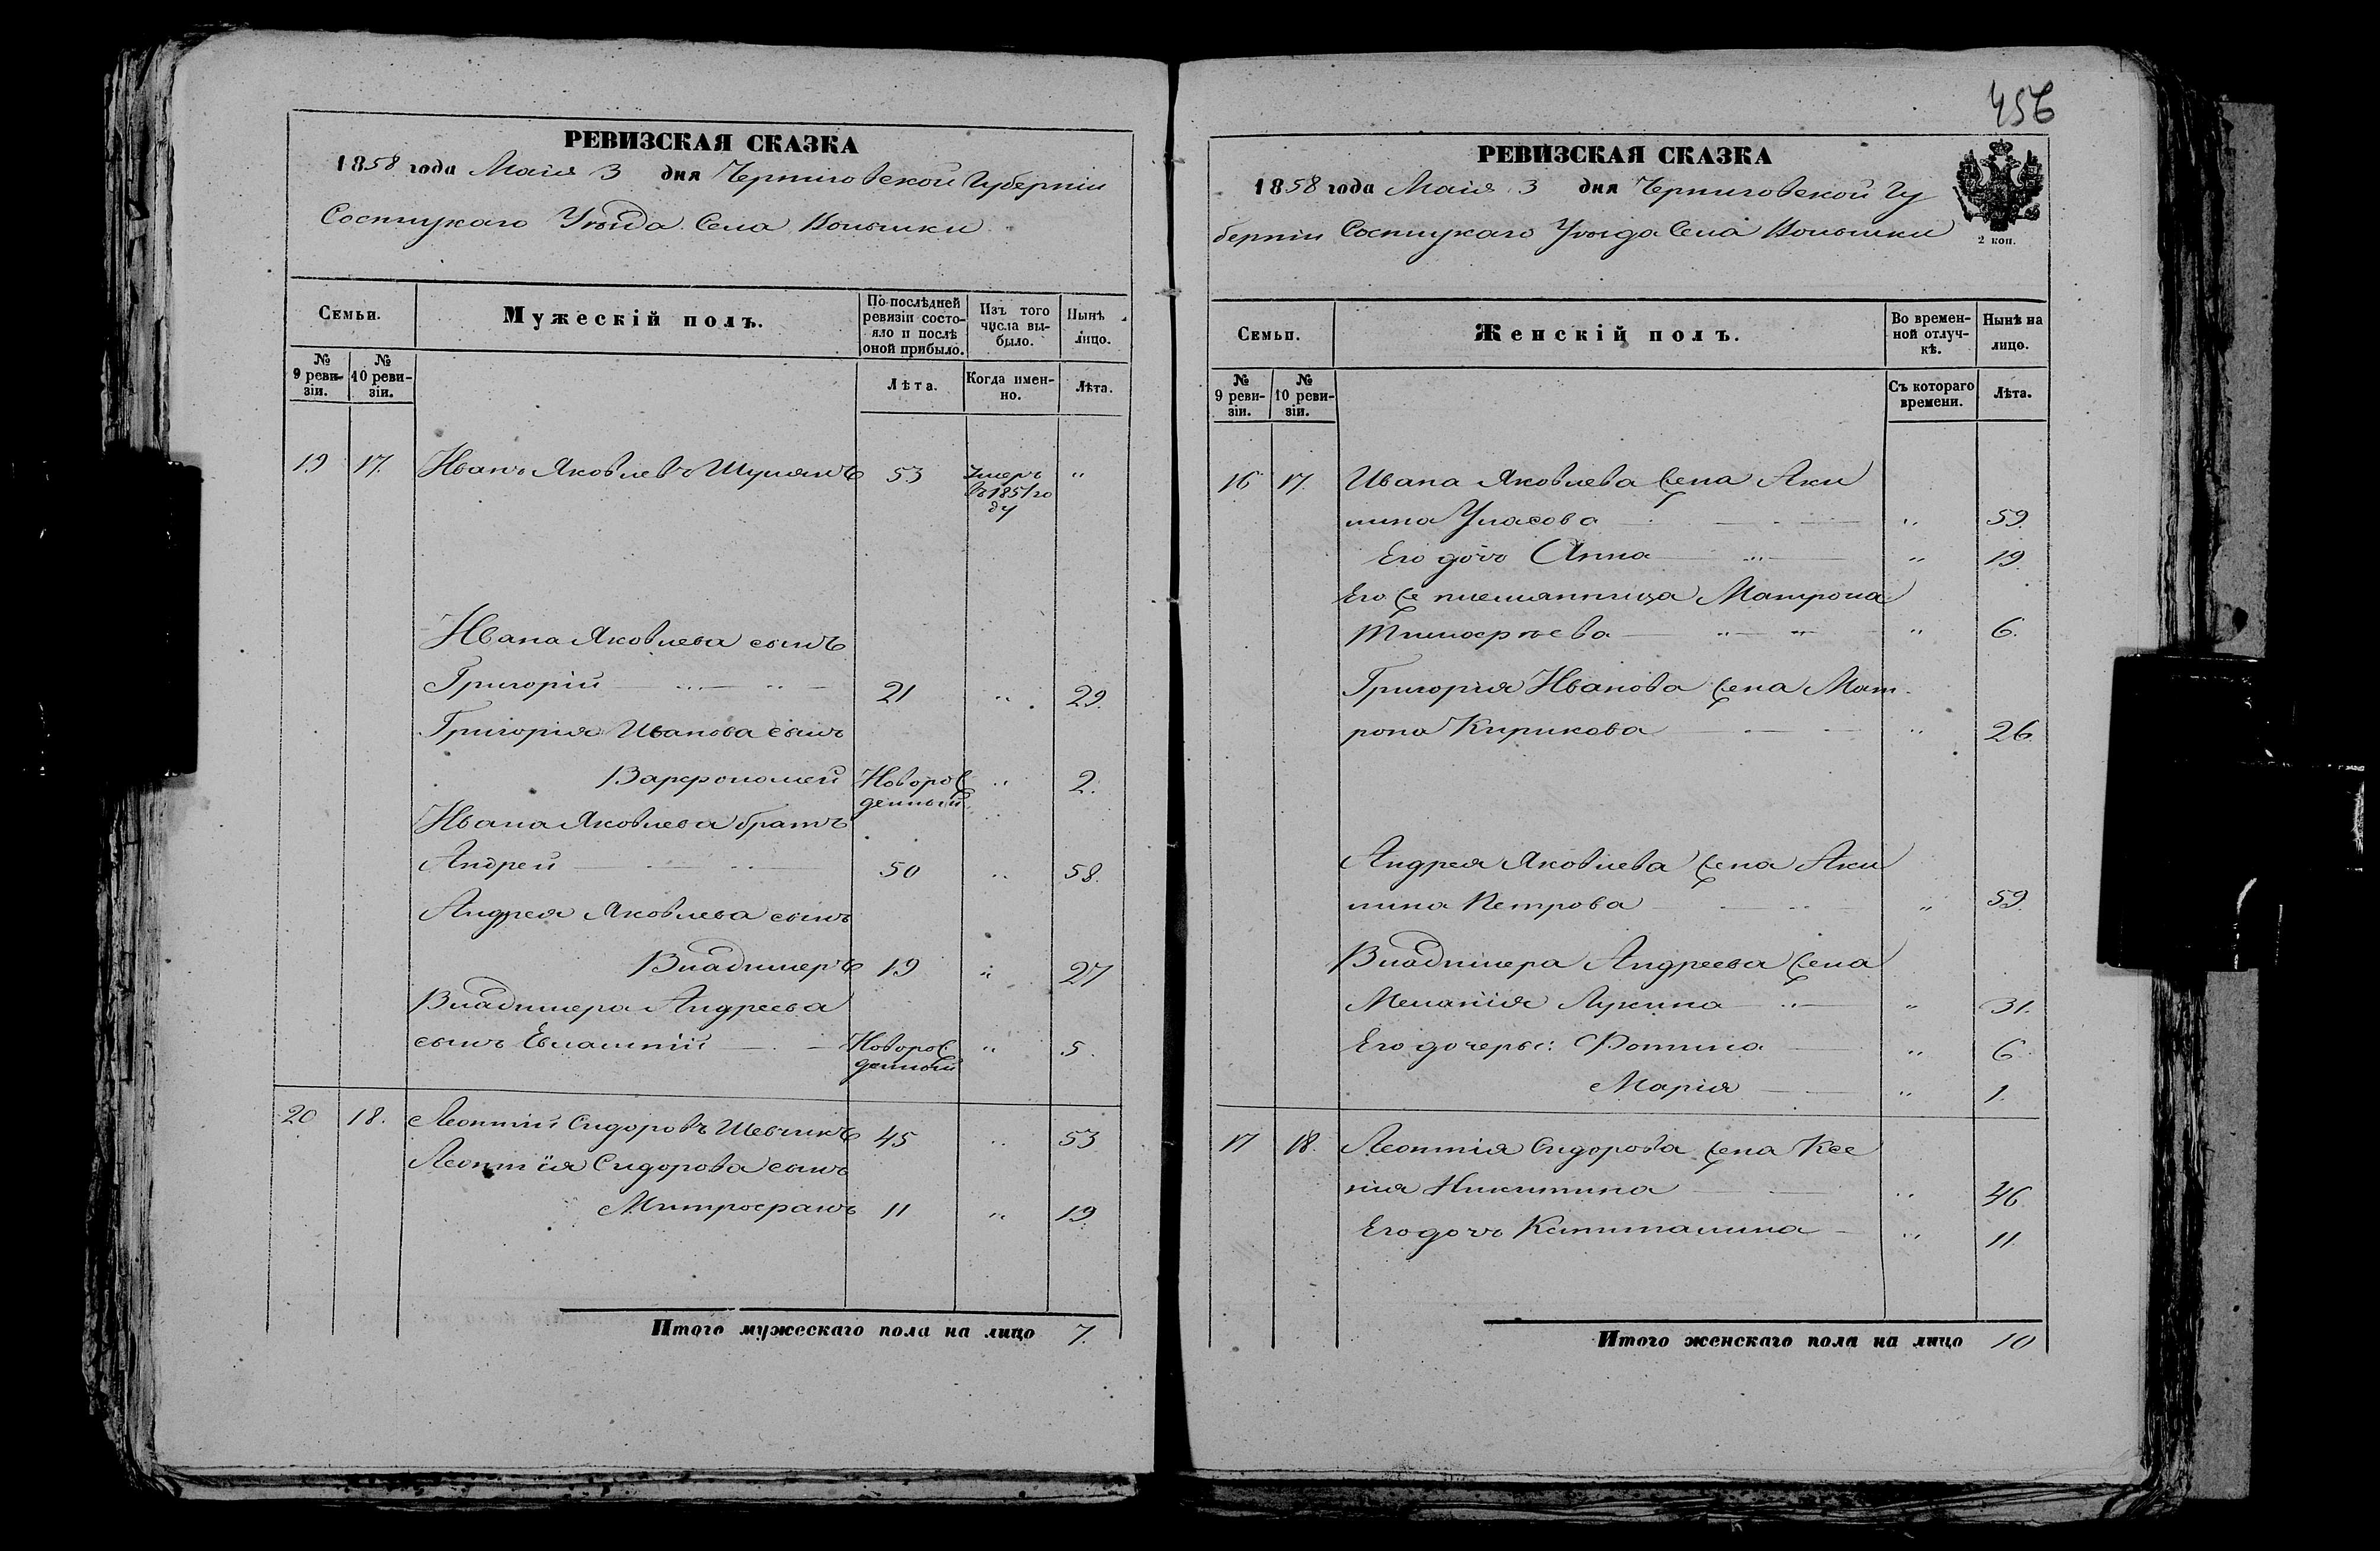 РЕВИЗСКАЯ СКАЗКА
1858 года Маія 3 дня Черниговской Губерніи
Сосницкаго Уѣзда Села
Семьи.
Мужескій полъ.
По послѣдней ревизіи состояло и послѣ оной прибыло.
Изъ того числа выбыло.
Нынѣ лицо.
№ 9 ревизіи.
№ 10 ревизіи.
Лѣта.
Когда именно.
Лѣта.
19 17. Иванъ Яковлевъ 53 Умеръ в 1851 го „
ду
Ивана Яковлева сынъ
Григорій 21 „ 29.
Григорія Иванова сынъ
Варфоломей Новорож „ 2.
денный
Ивана Яковлева братъ
Андрей 50 „ 58.
Андрея Яковлева сынъ
Владимеръ 19 „ 27
Владимера Андреева
сынъ Евлампій Новорож „ 5.
денный
20 18. Леонтій Сидоровъ Шевчикъ 45 „ 53
Леонтія Сидорова сынъ
Митрофанъ 11 „ 19.
Итого мужескаго пола на лицо 7.
456
РЕВИЗСКАЯ СКАЗКА
1858 года Маія 3 дня Черниговской Гу
берніи Сосницкаго Уѣзда Села
2 коп.
Семьи.
Женскій полъ.
Во временной отлучкѣ.
Нынѣ на лицо.
№ 9 ревизіи.
№ 10 ревизіи.
Съ котораго времени.
Лѣта.
16 17. Ивана Яковлева жена Аки
лина Уласова „ 59.
Его дочь Анна „ 19.
Его же племянница Матрона
Тимофѣева „ 6.
Григорія Иванова жена Мат
рона Кирикова „ 26.
Андрея Яковлева жена Аки
лина Петрова „ 59.
Владимера Андреева жена
Меланія Лукина „ 31.
Его дочеры: Фотина „ 6
Марія „ 1.
17 18. Леонтія Сидорова жена Ксе
нія Никитина „ 46
Его дочь Капиталина „ 11.
Итого женскаго пола на лицо 10